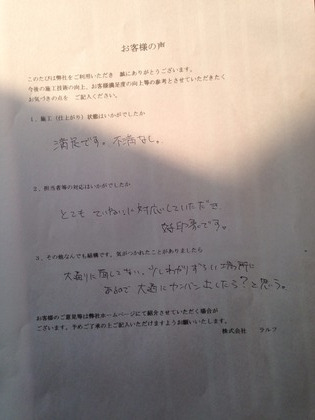 お客様の声
このたびは弊社をご利用いただき　誠にありがとうございます。
今後の施工技術の向上、お客様満足度の向上等の参考とさせていただきたく
お気づきの点を　ご記入ください。
1、施工（仕上がり）状態はいかがでしたか
満足です。不満なし。
2、担当者等の対応はいかがでしたか
とても ていねいに対応していただき
好印象です。
3、その他なんでも結構です。気がつかれたことがありましたら
大通りに面してない、少しわかりずらい場所に
あるので 大通にカンバン出したら？と思う。
お客様のご意見等は弊社ホームページにて紹介させていただく場合が
ございます。予めご了承の上ご記入いただけますようお願いいたします。
株式会社　ラルフ